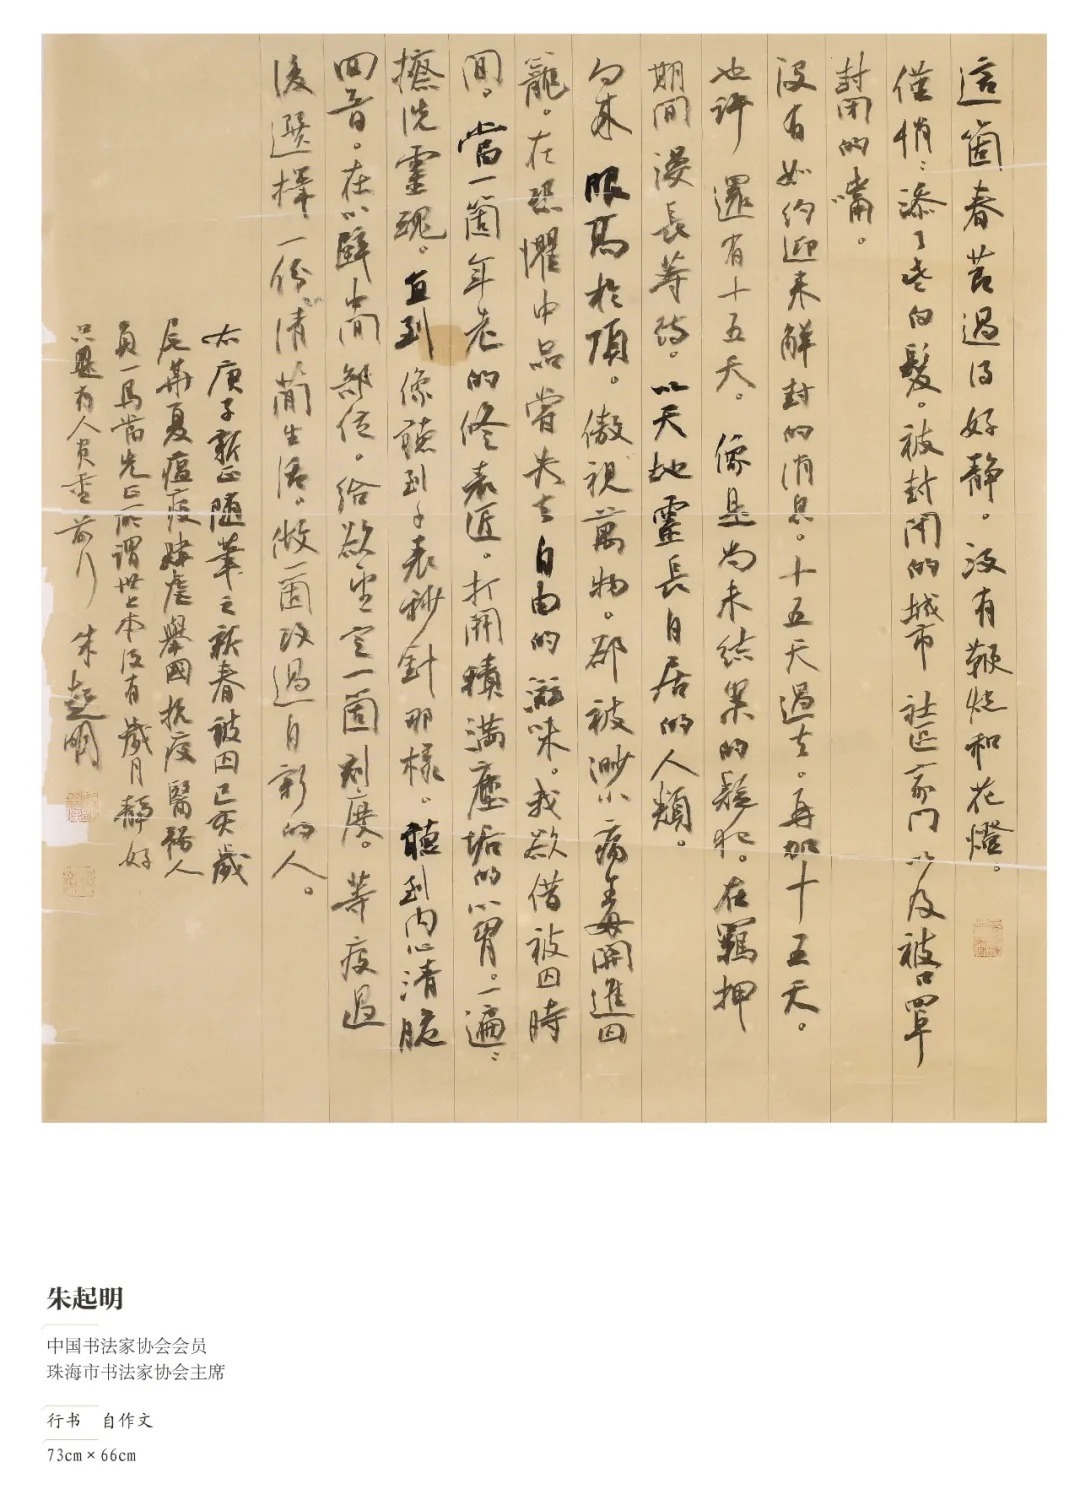 這箇春節過得好静。没有鞭炮和花燈。
僅悄〻添了些白髮。被封閉的城市 社區 家門 以及被口罩
封閉的嘴。
没有如约迎来解封的消息。十五天過去。再加十五天。
也許 還有十五天。像是尚未结果的疑犯。在羈押
期間漫長等待。以天地靈長自居的人類。
向来眼高於頂。傲視萬物。却被渺小病毒關進囚
籠。在恐懼中品嘗失去自由的滋味。我欲借被囚時
間。當一箇年老的修表匠。打開積滿塵垢的心胃。一遍〻
擦洗靈魂。直到像聽到手表秒針那樣。聽到内心清脆
回音。在心臟中間部位。给欲望定一箇刻度。等疫過
後選擇一份清簡生活。做一箇改過自新的人。
右庚子新正随筆之 新春被囚己亥歲
尾華夏瘟疫肆虐舉國抗疫醫務人
員一馬當先正所謂世上本没有歲月静好
只是有人負重前行 朱起明
朱起明
中国书法家协会会员
珠海市书法家协会主席
行书 自作文
73cm×66cm